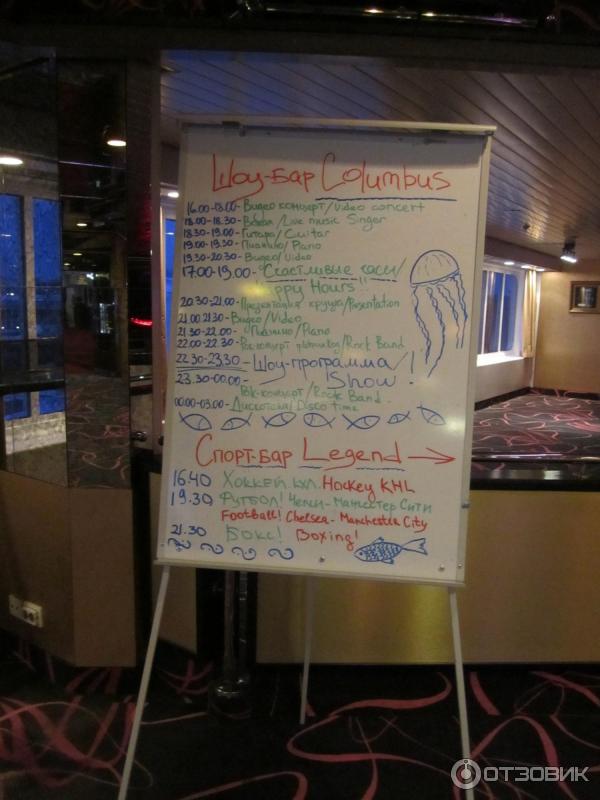 Шоу-Бар Columbus
16.00-18.00-Видео концерт/Video concert
18.00-18.30-Вокал/Live music Singer
18.30-19.00-Гитара/Guitar
19.00-19.30-Пианино/Piano
19.30-20.30-Видео/Video
17.00-19.00-"Счастливые часы/
Hours"
20.30-21.00-Презентация круиза/Pesentation
21.00 21.30-Видео/Video
21.30-22.00-Пианино/Piano
22.00-22.30-Рок-концерт /Rock Band
22.30-23.30-Шоу-программа/
Show!
23.30-00.00-
Рок-концерт/Rock Band
00.00-03.00-Дискотека/Disco time
Спорт-Бар Legend
16.40 Хоккей КХЛ. Hockey KHL
19.30 Футбол! Челси-Манчестер Сити
Football! Chelsea-Manchester City
21.30 Бокс! Boxing!
ОТЗОВИК